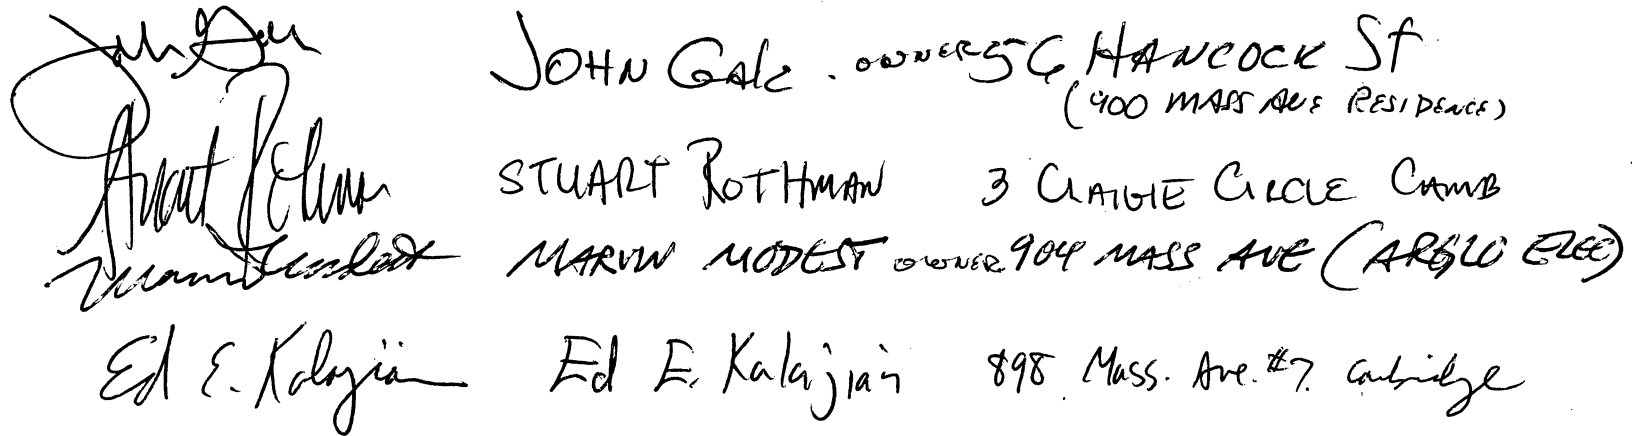 John Gale JOHN GALE . OWNER 56 HANCOCK St
(900 MASS AVE RESIDENCE)
Stuart Rothman STUART ROTHMAN 3 CRAIGIE CIRCLE CAMB
Marvin Modest MARVIN MODEST OWNER 904 MASS AVE (ARGLO ELEC)
Ed E. Kalajian Ed E. Kalajian 898 Mass. Ave. #7. Cambridge